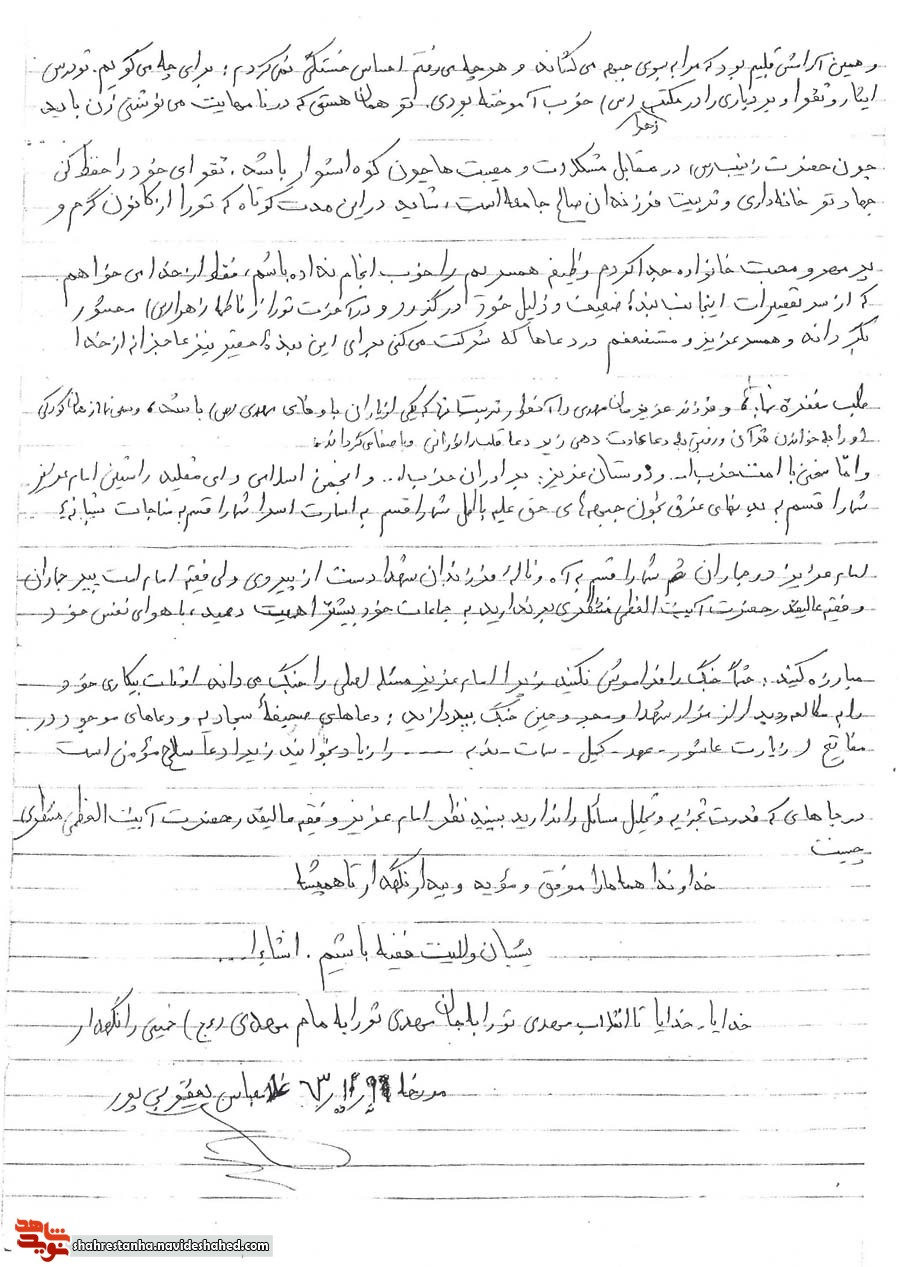 و همین آرامش قلبم بود که مرا به سوی جبهه می کشاند و هر چه می رفتم احساس خستگی نمی کردم، برای چه می گویم. تو درس
ایثار و تقوا و بردباری را در مکتب زهرا (س) خوب آموخته بودی. تو همان هستی که در نامه هایت می نوشتی زن باید
چون حضرت زینب (س) در مقابل مشکلات و مصیبت ها چون کوه استوار باشد، تقوای خود را حفظ کنی
جهاد تو خانه داری و تربیت فرزندان صالح جامعه است، شاید در این مدت کوتاه که تو را از کانون گرم و
پر مهر و محبت خانواده جدا کردم وظیفه همسریم را خوب انجام نداده باشم، فقط از خدا می خواهم
که از سر تقصیرات اینجانب بندهٔ ضعیف و ذلیل خود در گذرد و در آخرت تو را با فاطمه زهرا (س) محشور
بگرداند و همسر عزیز و مستضعفم در دعاها که شرکت می کنی برای این بندهٔ حقیر نیز عاجزانه از خدا
طلب مغفرت نما، و فرزند عزیزمان مهدی را آنطور تربیت نما که یکی از یاران باوفای مهدی (عج) باشد، و از همان کودکی
او را به خواندن قرآن و رفتن به دعا عادت دهی زیرا دعا قلب را نورانی و با صفا می گرداند،
و اما سخنی با امت حزب ا... و دوستان عزیز: برادران حزب ا... و انجمن اسلامی و ای مقلد راستین امام عزیز
شما را قسم به بدنهای غرق بخون جبهه های حق علیه باطل شما را قسم به اسارت اسرا شما را قسم به مناجات شبانهٔ
امام عزیز در جماران شما را قسم به آه و نالهٔ فرزندان شهدا دست از پیروی ولی فقیه امام امت پیر جماران
و فقیه عالیقدر حضرت آیت العظمی منتظری بر ندارید به جماعات خود بیشتر اهمیت دهید، با هوای نفس خود
مبارزه کنید، حتماً جنگ را فراموش نکنید زیرا امام عزیز مسئله اصلی را جنگ می داند اوقات بیکاری خود
را به مطالعه و دیدار از مزار شهدا و مجروحین جنگ بپردازید، دعاهای صحیفهٔ سجادیه و دعاهای موجود در
مفاتیح از زیارت عاشورا - عهد - کمیل - سمات - ندبه ---- را زیاد بخوانید زیرا دعا سلاح مؤمن است
در جاهای که قدرت تجزیه و تحلیل مسائل را ندارید ببینید نظر امام عزیز و فقیه عالیقدر حضرت آیت العظمی منتظری
چیست
خداوندا همه ما را موفق و مؤید و بیدار نگهدار تا همیشه
پشتیبان ولایت فقیه باشیم. انشاءا...
خدایا، خدایا تا انقلاب مهدی تو را به جان مهدی تو را به امام مهدی (عج) خمینی را نگهدار
مورخه ۶۳ غلامعباس یعقوبی پور
نوید شاهد
shahrestanha.navideshahed.com